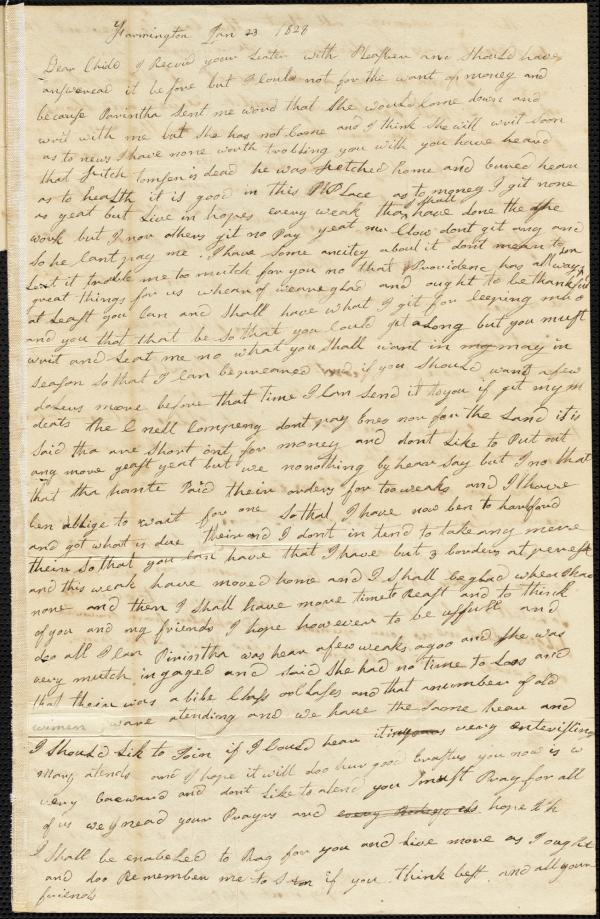 Farmington Jan 23 1828
Dear Child I Recivd your Leater with Pleasuer and Should have
answeread it before but I Could not for the want of money and
because Parintha Sent me word that She would Come down and
writ with me but She has not Come and I think She will writ Soon
as to news I have none worth trobling you with you have heard
that Fitch is dead he was fetched home and bured hear
as to health it is good in this Place as to money I git none
as yeat but Live in hopes every weak that I Shall have done the
work but I now others git no Pay yeat mr Clow dont git any and
So he Cant pay me I have Some ancity about it dont mean to
Leat it truble me too mutch for you no that Providenc has allways
great things for us whear of weare glad and ought to be thankfull
at Least you Can and Shall have what I git for Keeping
and you that that be So that you Could git aLong but you must
writ and Leat me no what you Shall want in may in
Season So that I Can be if you Should want a few
dolers more before that time I Can Send it to you if git my
deats the C nell Compeny dont pay now for the Land it is
Said tha are Short ont for money and dont Like to Put out
any more yeast yeat but we no nothing by hear Say but I no that
that tha hante Paid their orders for too weaks and I have
ben abblige to wait for one So that I have now ben to hartford
and got what is due their and I dont in tend to take any more
their So that you Can have that I have but 3 borders at present
and this weak have moved home and I Shall be glad when I have
none and then I Shall have more time to Reast and to think
of you and my friends I hope however to be usfull and
doo all I Can Pirintha was hear a few weaks agoo and She was
very mutch in gaged and Said She had no time to Loos and
that their was a bibe Class of Lases and that a number of old
wimen ware atending and we have the Saome hear and
I Should Lik to Join if I Could hear it very interesting
many atends and I hope it will doo hur good Erastus you now is
very bacward and dont Like to atend you must Pray for all
of us we nead your Prayrs and hope
I Shall be enabeLed to Pray for you and Live more as I ought
and doo Remember me to if you think best and all your
friends